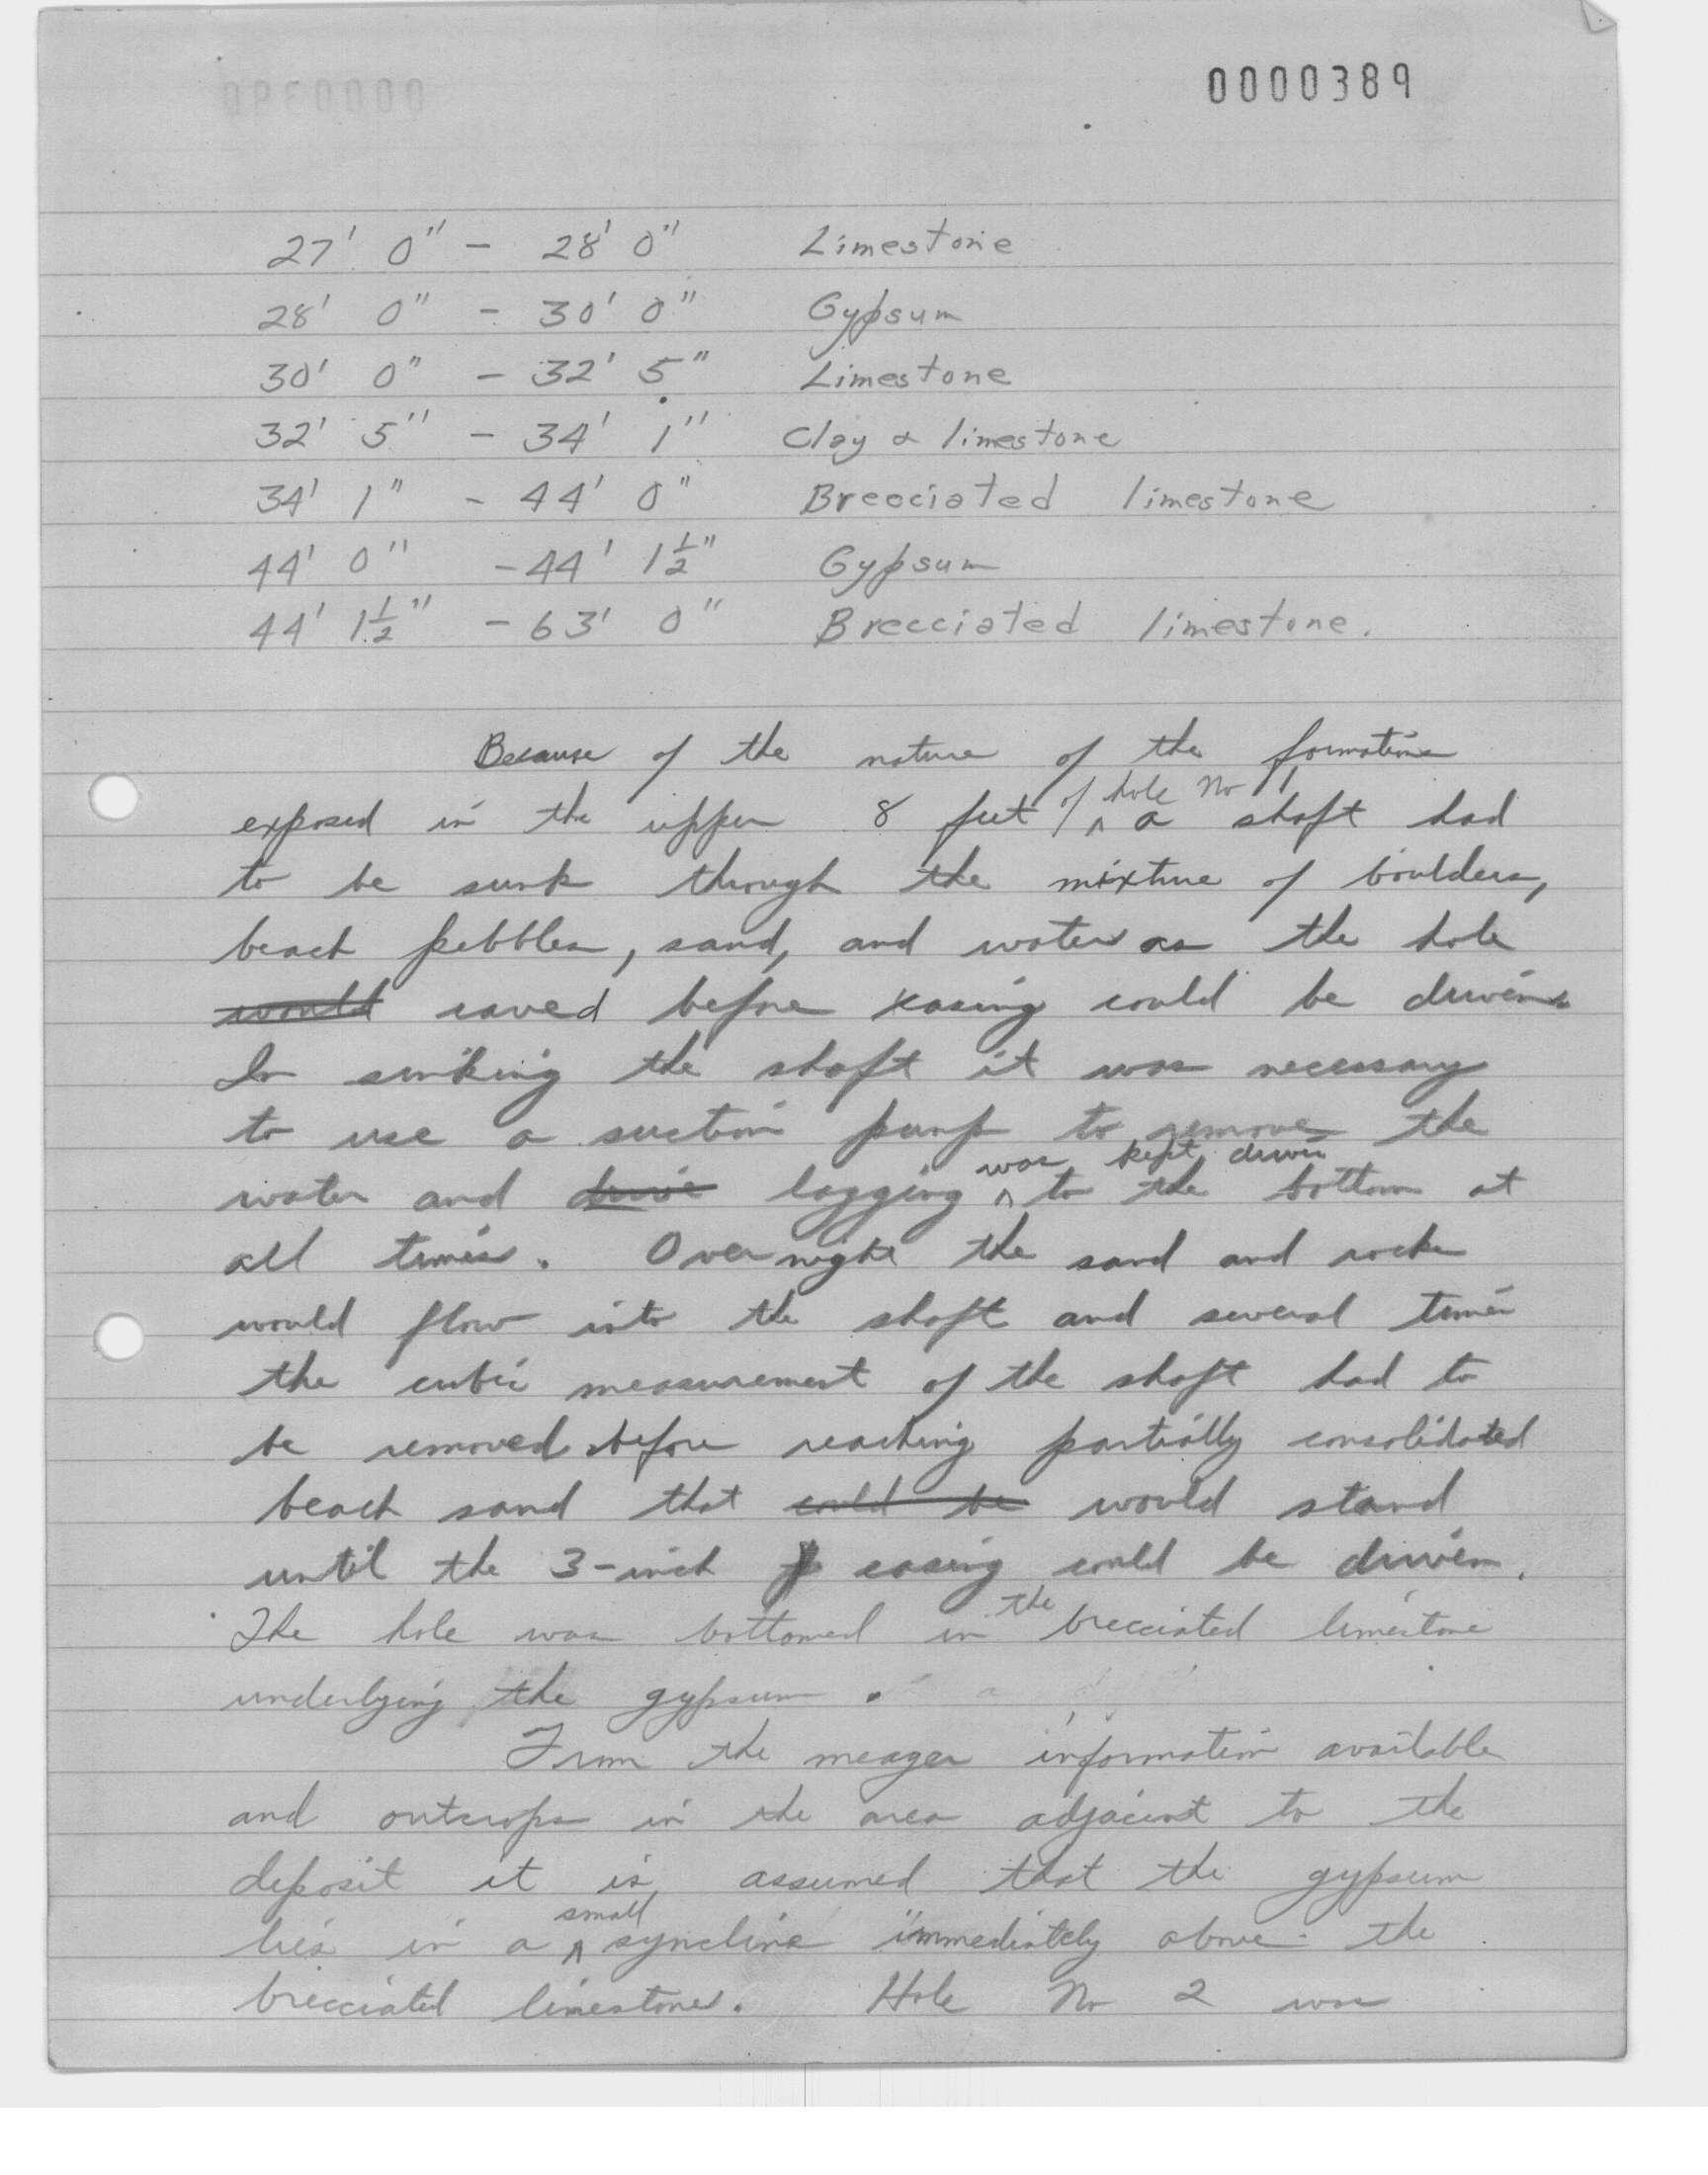 0000389
27' 0" - 28' 0" Limestone
28' 0" - 30' 0" Gypsum
30' 0" - 32' 5" Limestone
32' 5" - 34' 1" Clay & limestone
34' 1" - 44' 0" Brecciated limestone
44' 0" - 44' 1½" Gypsum
44' 1½" - 63' 0" Brecciated limestone.
Because of the nature of the formations
exposed in the upper 8 feet of hole No 1 a shaft had
to be sunk through the mixture of boulders,
beach pebbles, sand, and water as the hole
would caved before casing could be driven.
In sinking the shaft it was necessary
to use a suction pump to remove the
water and drive lagging was kept driven to the bottom at
all times. Overnight the sand and rocks
would flow into the shaft and several times
the cubic measurement of the shaft had to
be removed before reaching partially consolidated
beach sand that could be would stand
until the 3-inch casing could be driven.
The hole was bottomed in the brecciated limestone
underlying the gypsum.
From the meager information available
and outcrops in the area adjacent to the
deposit it is assumed that the gypsum
lies in a small syncline immediately above the
brecciated limestones. Hole No 2 was